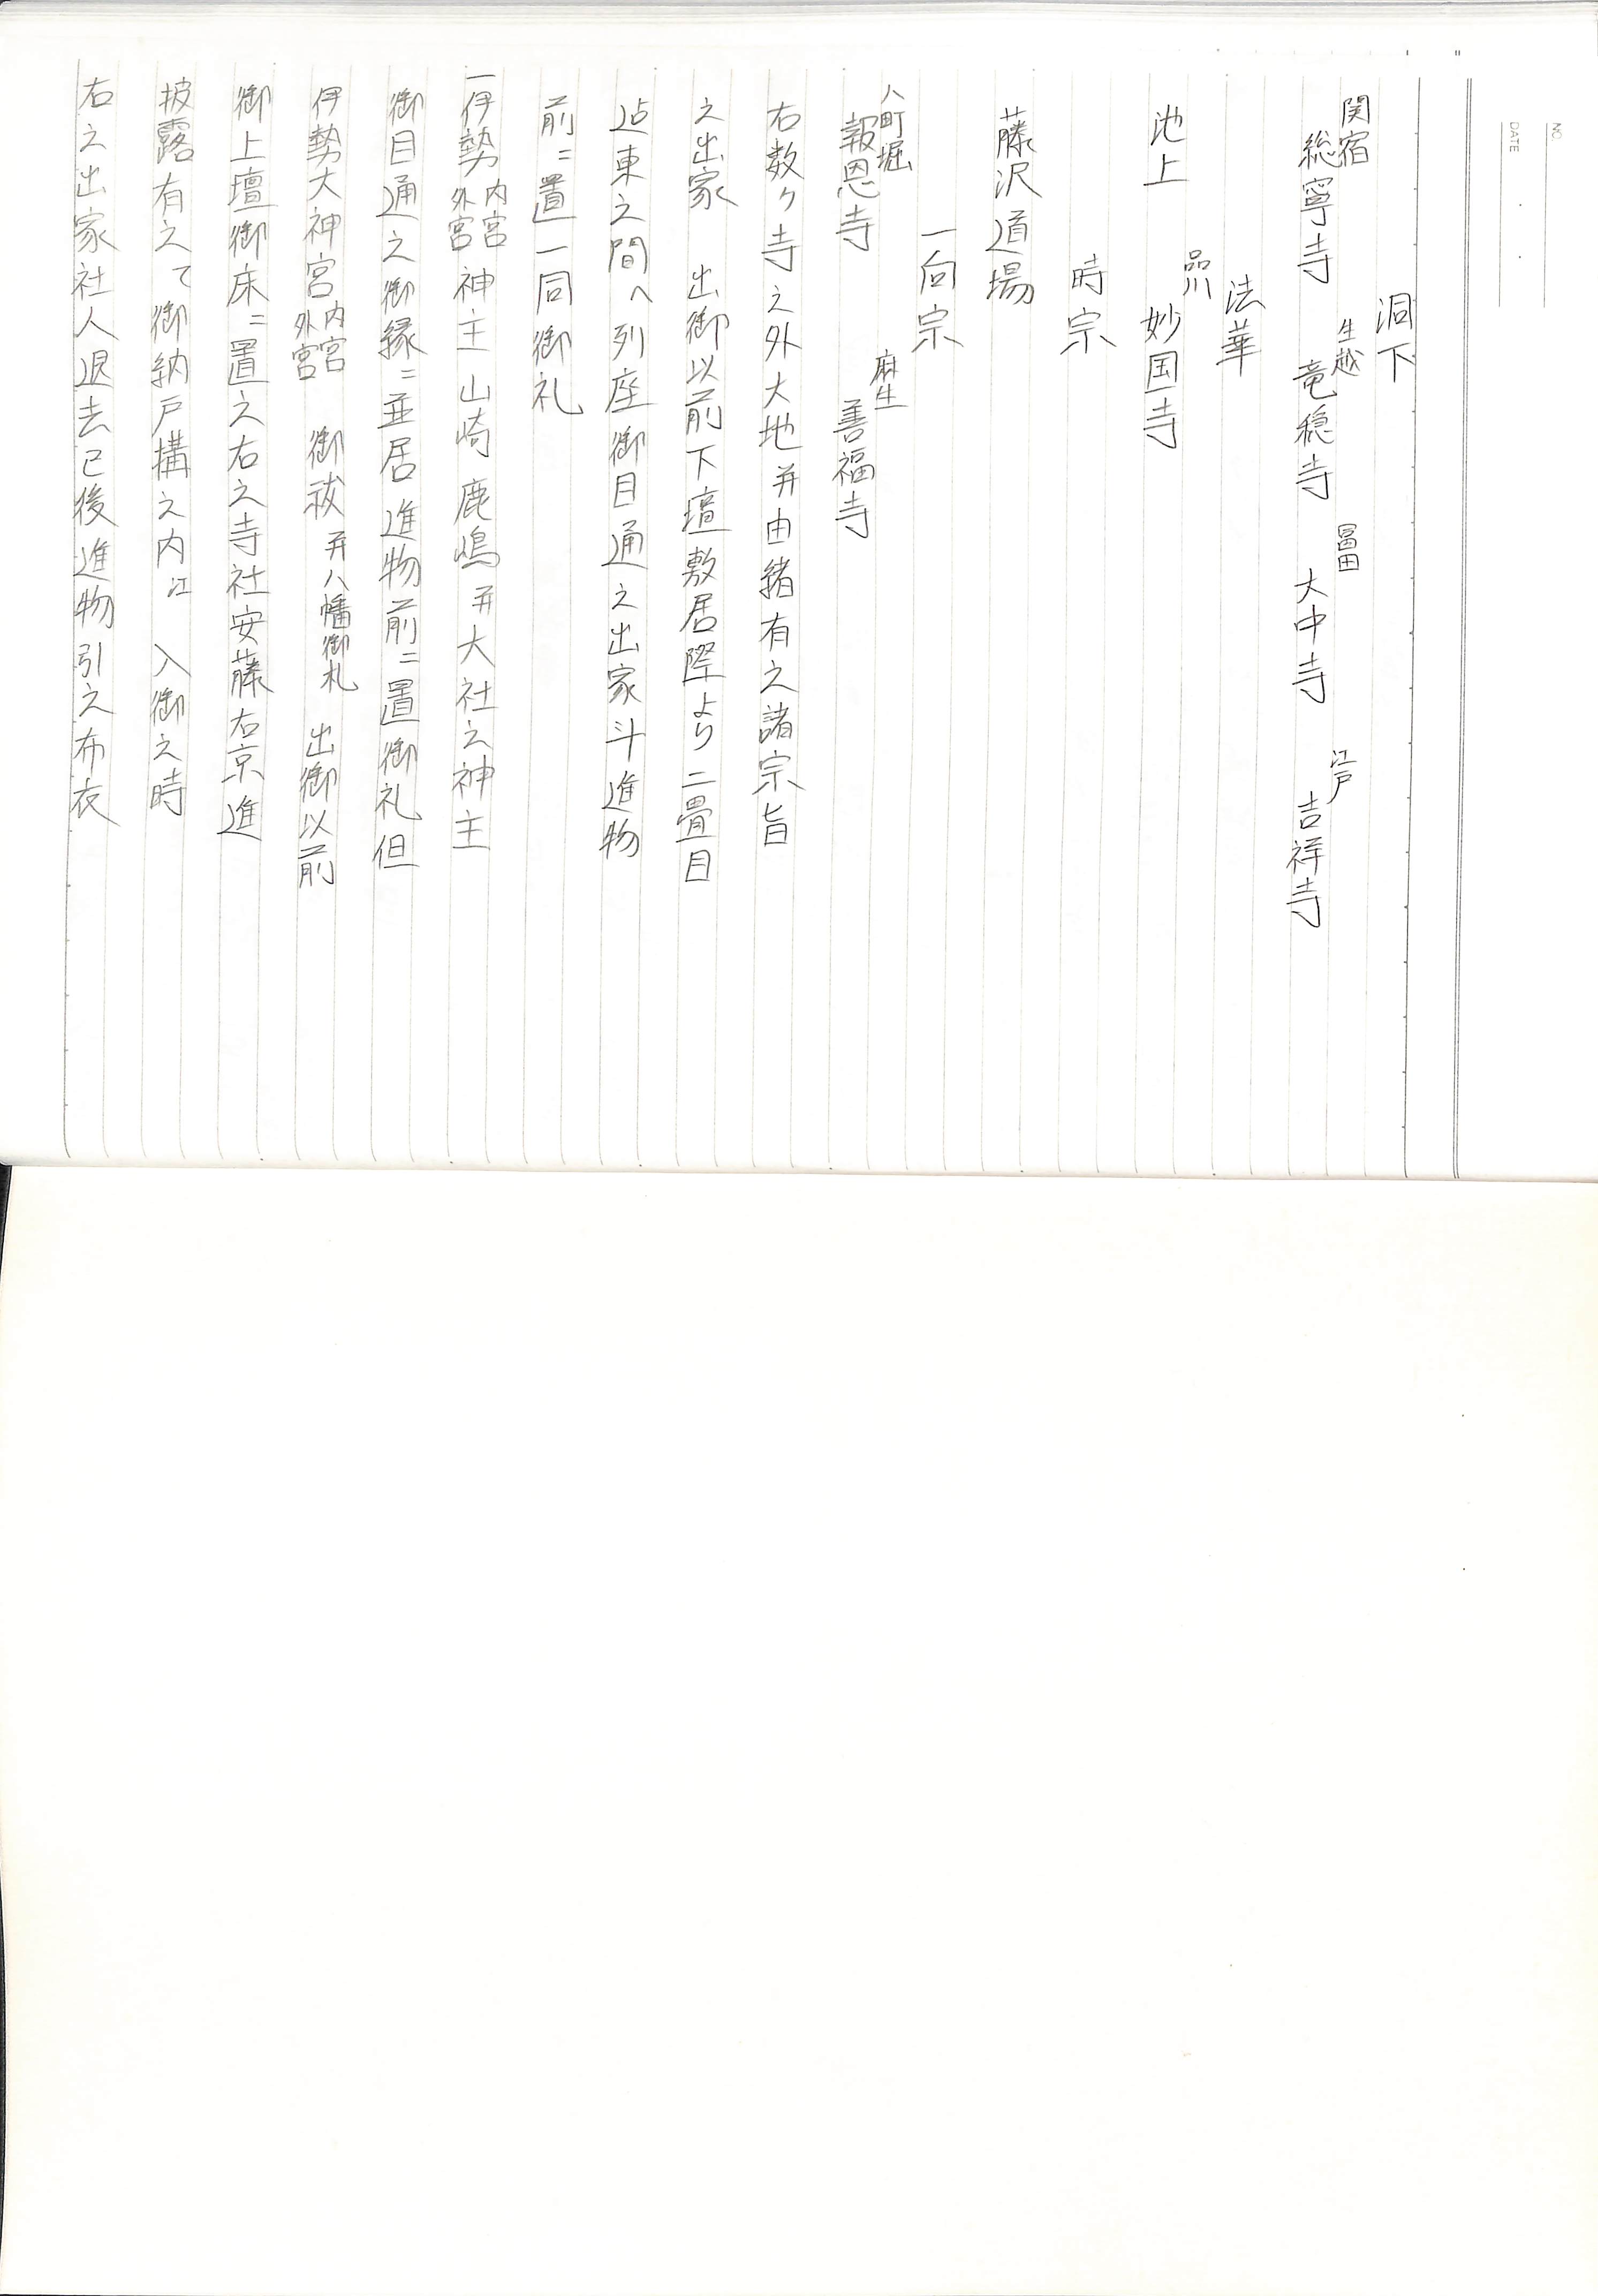 NO.
DATE
洞下
関宿 生越 冨田 江戸
総寧寺 竜穏寺 大中寺 吉祥寺
法華
品川
池上 妙国寺
時宗
藤沢道場
一向宗
八町堀 麻生
報恩寺 善福寺
右数ケ寺之外大地并由緒有之諸宗旨
之出家 出御以前下壇敷居際より二畳目
迠東之間へ列座御目通之出家斗進物
前ニ置一同御礼
一伊勢内宮外宮神主山崎鹿嶋并大社之神主
御目通之御縁ニ並居進物前ニ置御礼但
伊勢大神宮内宮外宮 御祓并八幡御札 出御以前
御上壇御床ニ置之右之寺社安藤右京進
披露有之て御納戸構之内江 入御之時
右之出家社人退去已後進物引之布衣